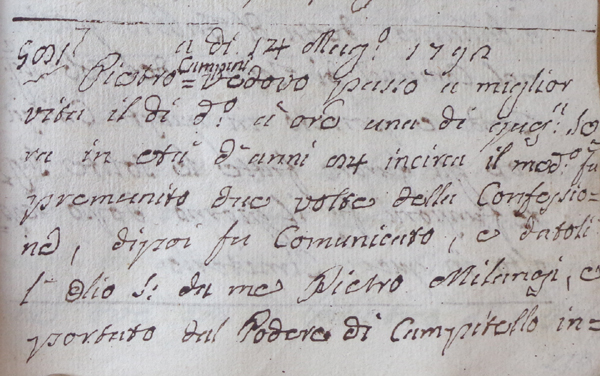 a di 14 Mag.o 1792
Pietro Campini = Vedovo passò a miglior
vita il di d.o a ore una di ques.a se
ra in età d'anni 64 incirca il med.o fu
premunito due volte della Confessio=
ne, dipoi fu Comunicato, e datoli
l'Olio S: da me Pietro Milangi, e
portato dal Podere di Campitello in=